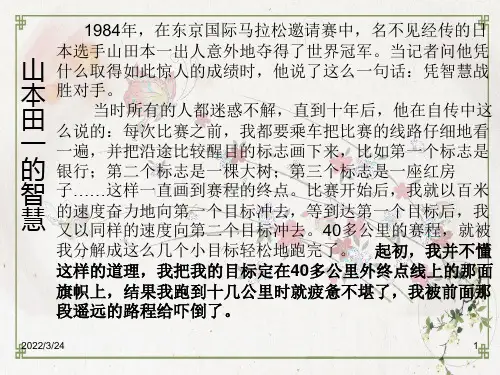 山本田一的智慧
1984年，在东京国际马拉松邀请赛中，名不见经传的日
本选手山田本一出人意外地夺得了世界冠军。当记者问他凭
什么取得如此惊人的成绩时，他说了这么一句话：凭智慧战
胜对手。
当时所有的人都迷惑不解，直到十年后，他在自传中这
么说的：每次比赛之前，我都要乘车把比赛的线路仔细地看
一遍，并把沿途比较醒目的标志画下来，比如第一个标志是
银行；第二个标志是一棵大树；第三个标志是一座红房
子……这样一直画到赛程的终点。比赛开始后，我就以百米
的速度奋力地向第一个目标冲去，等到达第一个目标后，我
又以同样的速度向第二个目标冲去。40多公里的赛程，就被
我分解成这么几个小目标轻松地跑完了。 起初，我并不懂
这样的道理，我把我的目标定在40多公里外终点线上的那面
旗帜上，结果我跑到十几公里时就疲惫不堪了，我被前面那
段遥远的路程给吓倒了。
2022/3/24
1